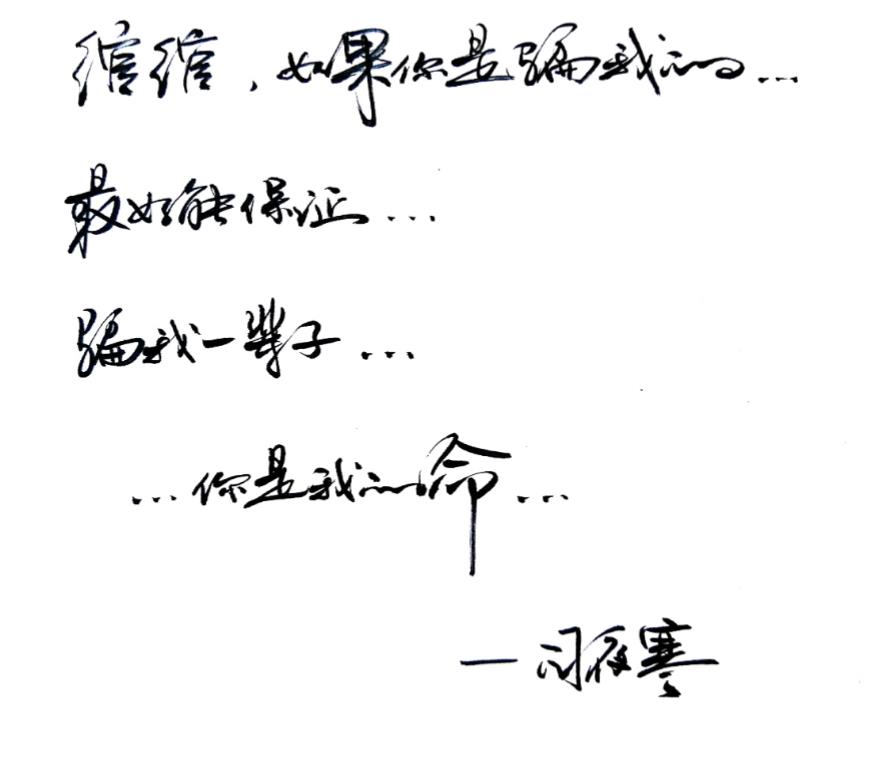 绾绾，如果你是骗我的...
最好能保证...
骗我一辈子...
...你是我的命...
—司夜寒